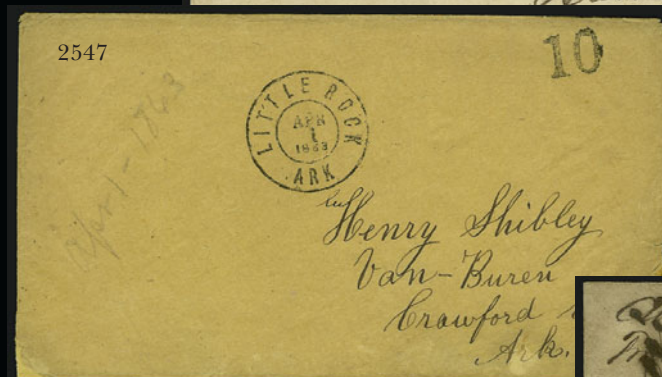 2547
10
LITTLE ROCK
APR
1
1863
ARK
Apr 1 - 1863
Henry Shibley
Van-Buren
Crawford
Ark.